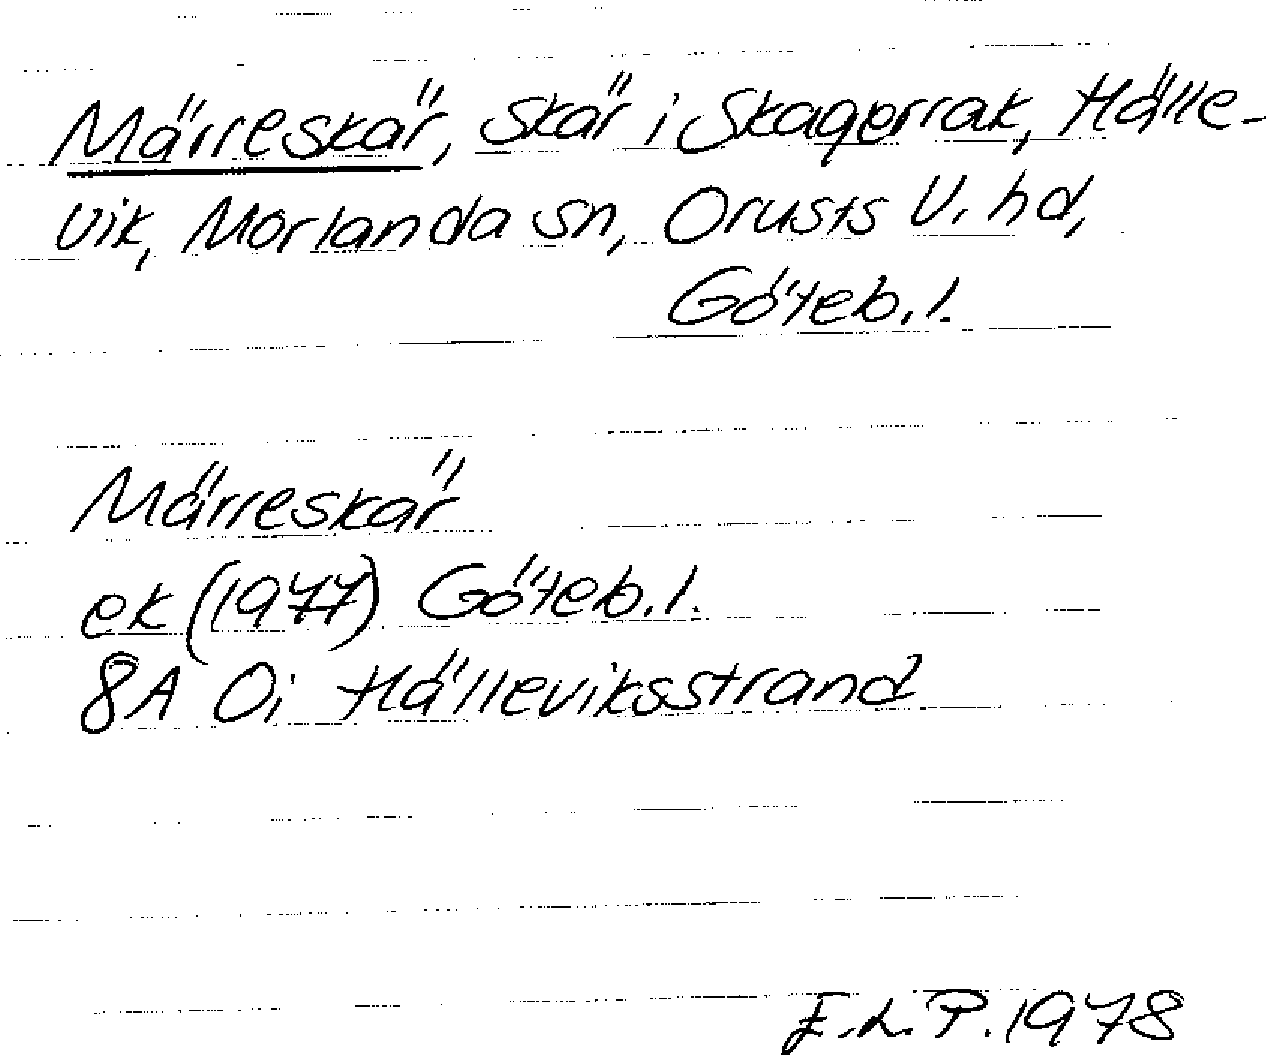 Märreskär, skär i Skagerrak, Hälle-
vik, Morlanda sn, Orusts V. hd,
Göteb. l.
Märreskär
ek (1977) Göteb. l.
8A 0i Hälleviksstrand
E.L.P. 1978